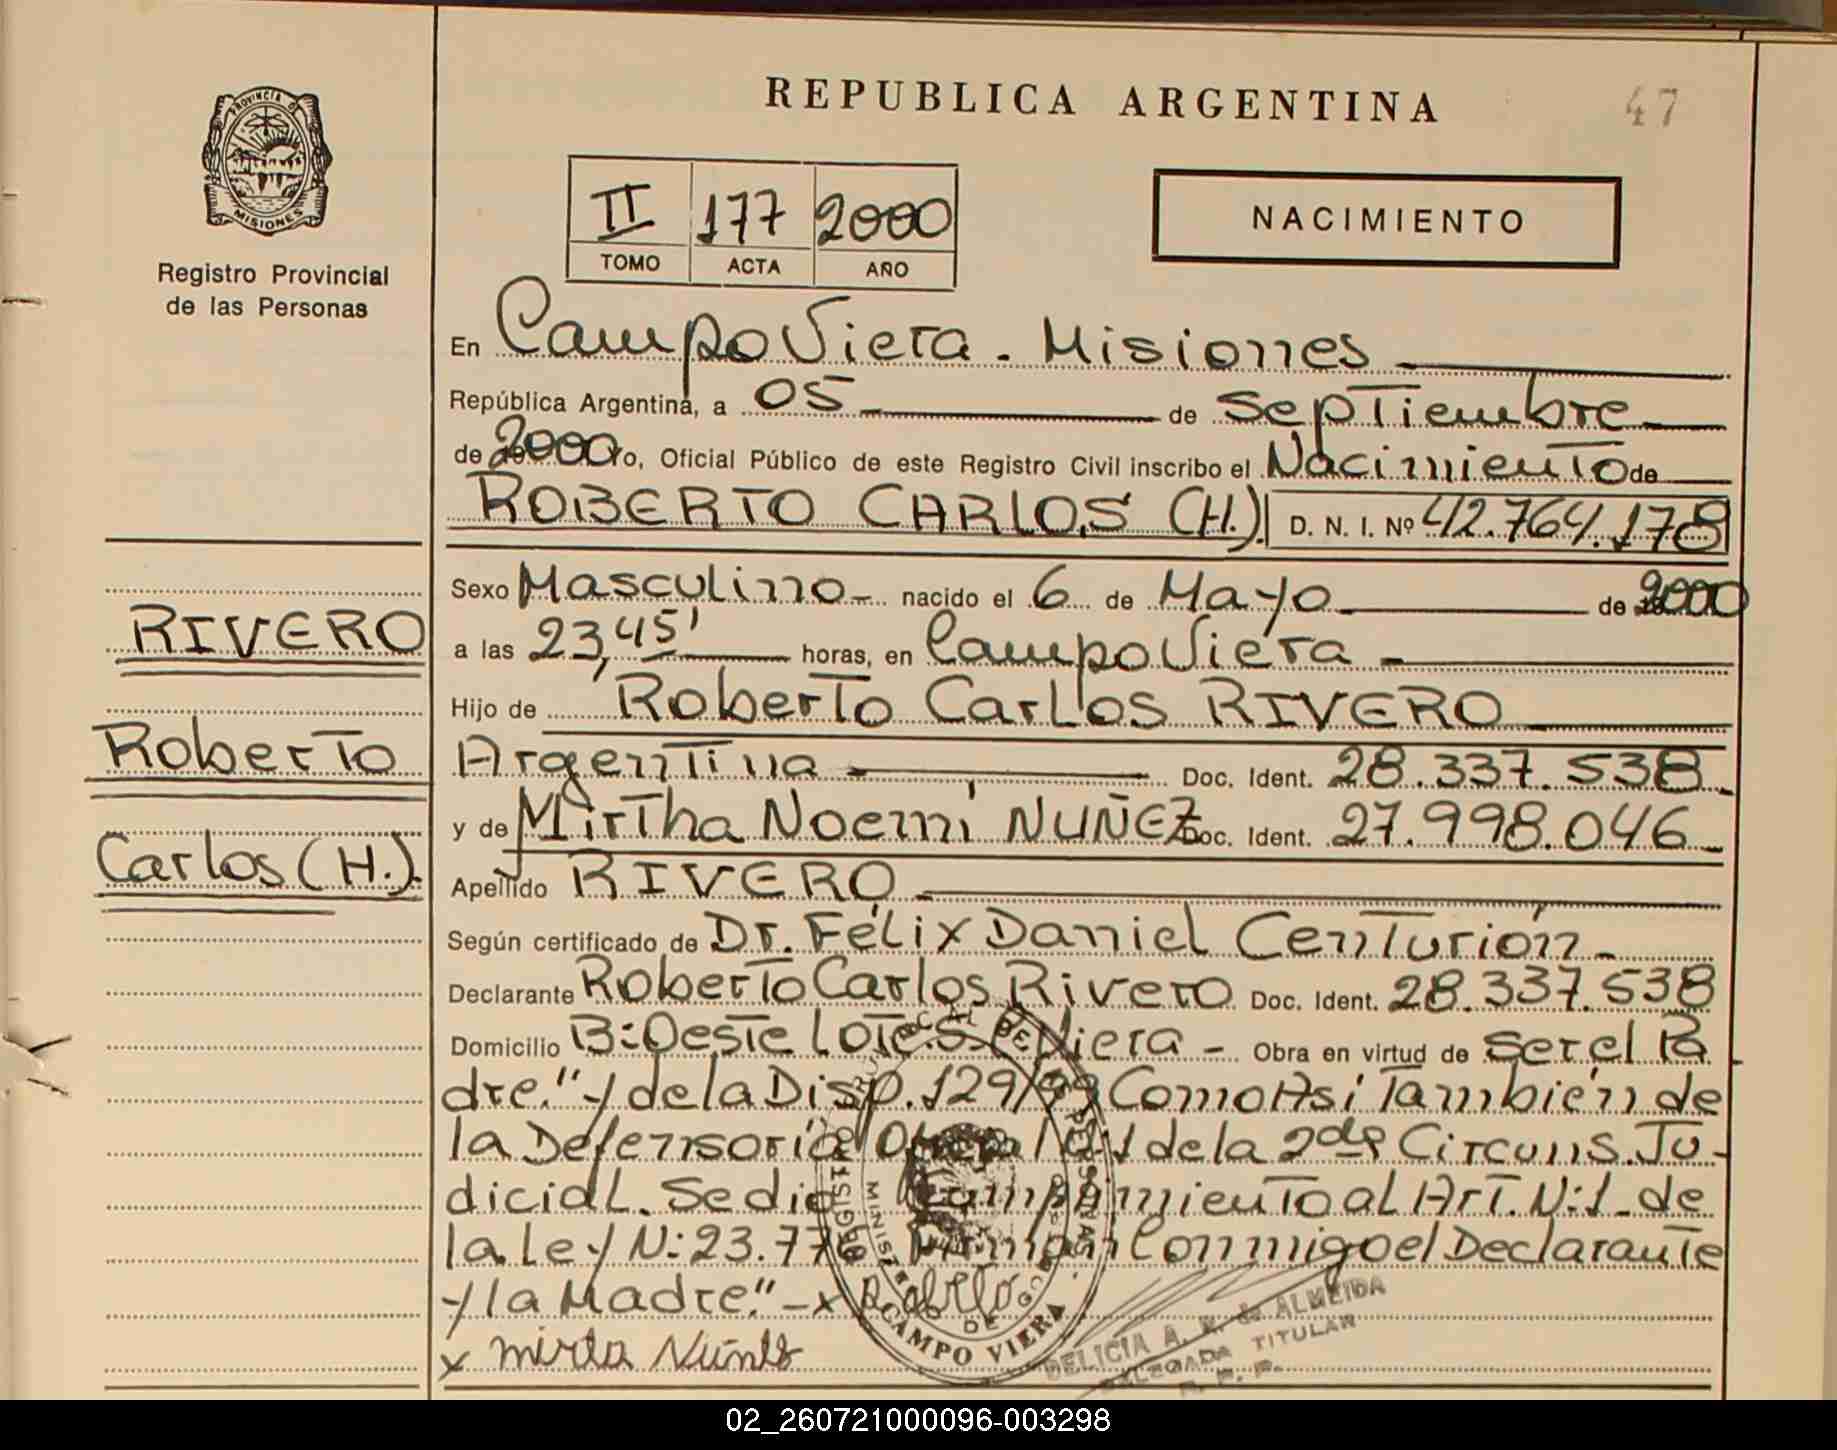 REPUBLICA ARGENTINA
47
PROVINCIA DE
MISIONES
Registro Provincial
de las Personas
II 177 2000
TOMO ACTA AÑO
NACIMIENTO
En Campo Viera. Misiones
República Argentina, a 05 de Septiembre
de 2000 Yo, Oficial Público de este Registro Civil inscribo el Nacimiento de
ROBERTO CARLOS (H.) D. N. I. Nº 42.764.178
Sexo Masculino nacido el 6 de Mayo de 2000
RIVERO
a las 23,45' horas, en Campo Viera
Hijo de Roberto Carlos RIVERO
Roberto
Argentina Doc. Ident. 28.337.538
y de Mirtha Noemí NUÑEZ Doc. Ident. 27.998.046
Carlos (H.).
Apellido RIVERO
Según certificado de Dr. Félix Daniel Centurión
Declarante Roberto Carlos Rivero Doc. Ident. 28.337.538
Domicilio B: Oeste Lote.5 Viera Obra en virtud de ser el Pa
dre." y de la Disp. 129/99 Como Así También de
la Defensoría de la 2da Circuns. Ju-
dicial. Se dio Cumplimiento al Art. N:1 de
la Ley N: 23.776 Firman Conmigo el Declarante
y la Madre." - x
CAMPO VIERA
DELICIA A. de ALMEIDA
DELEGADA TITULAR
R. P. P.
x Mirta Nuñes
02_260721000096-003298